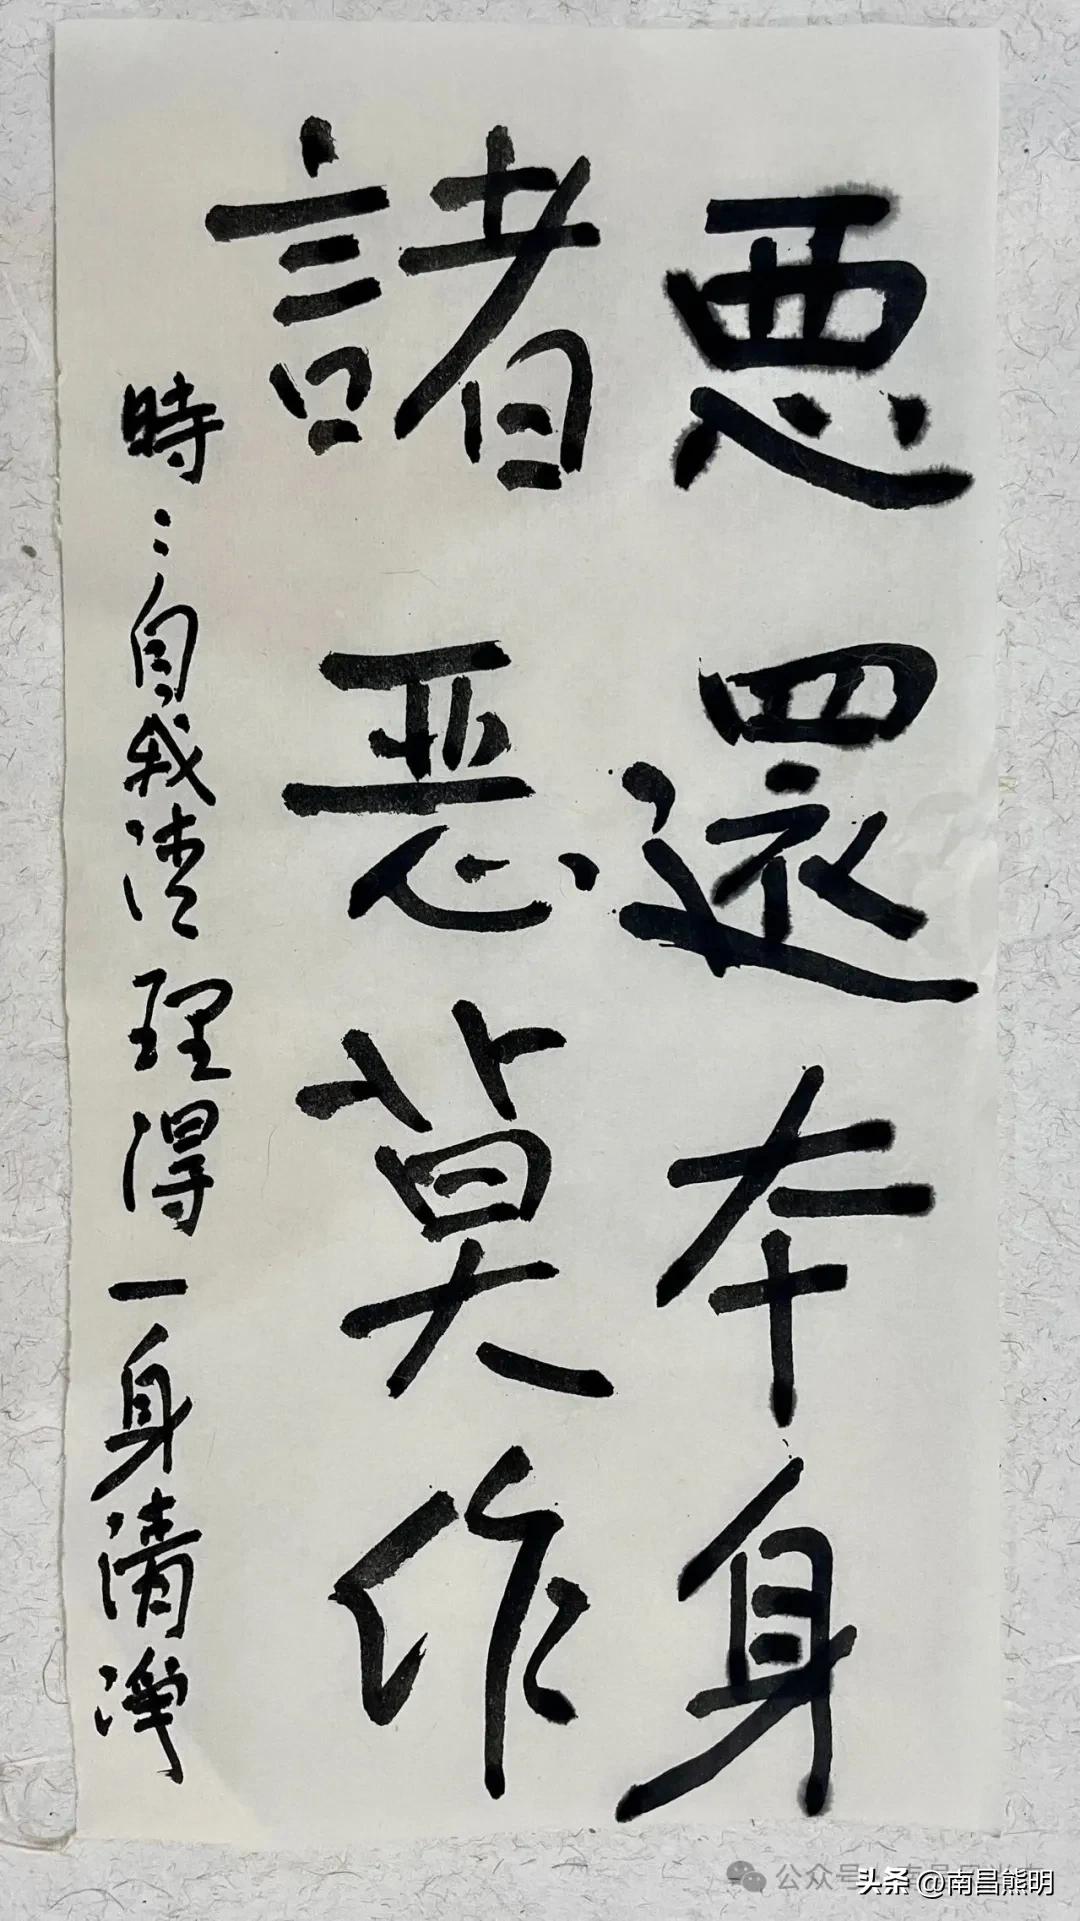 悪還本身
諸恶莫作
時〻自我清理得一身清淨
公众号
头条 @南昌熊明